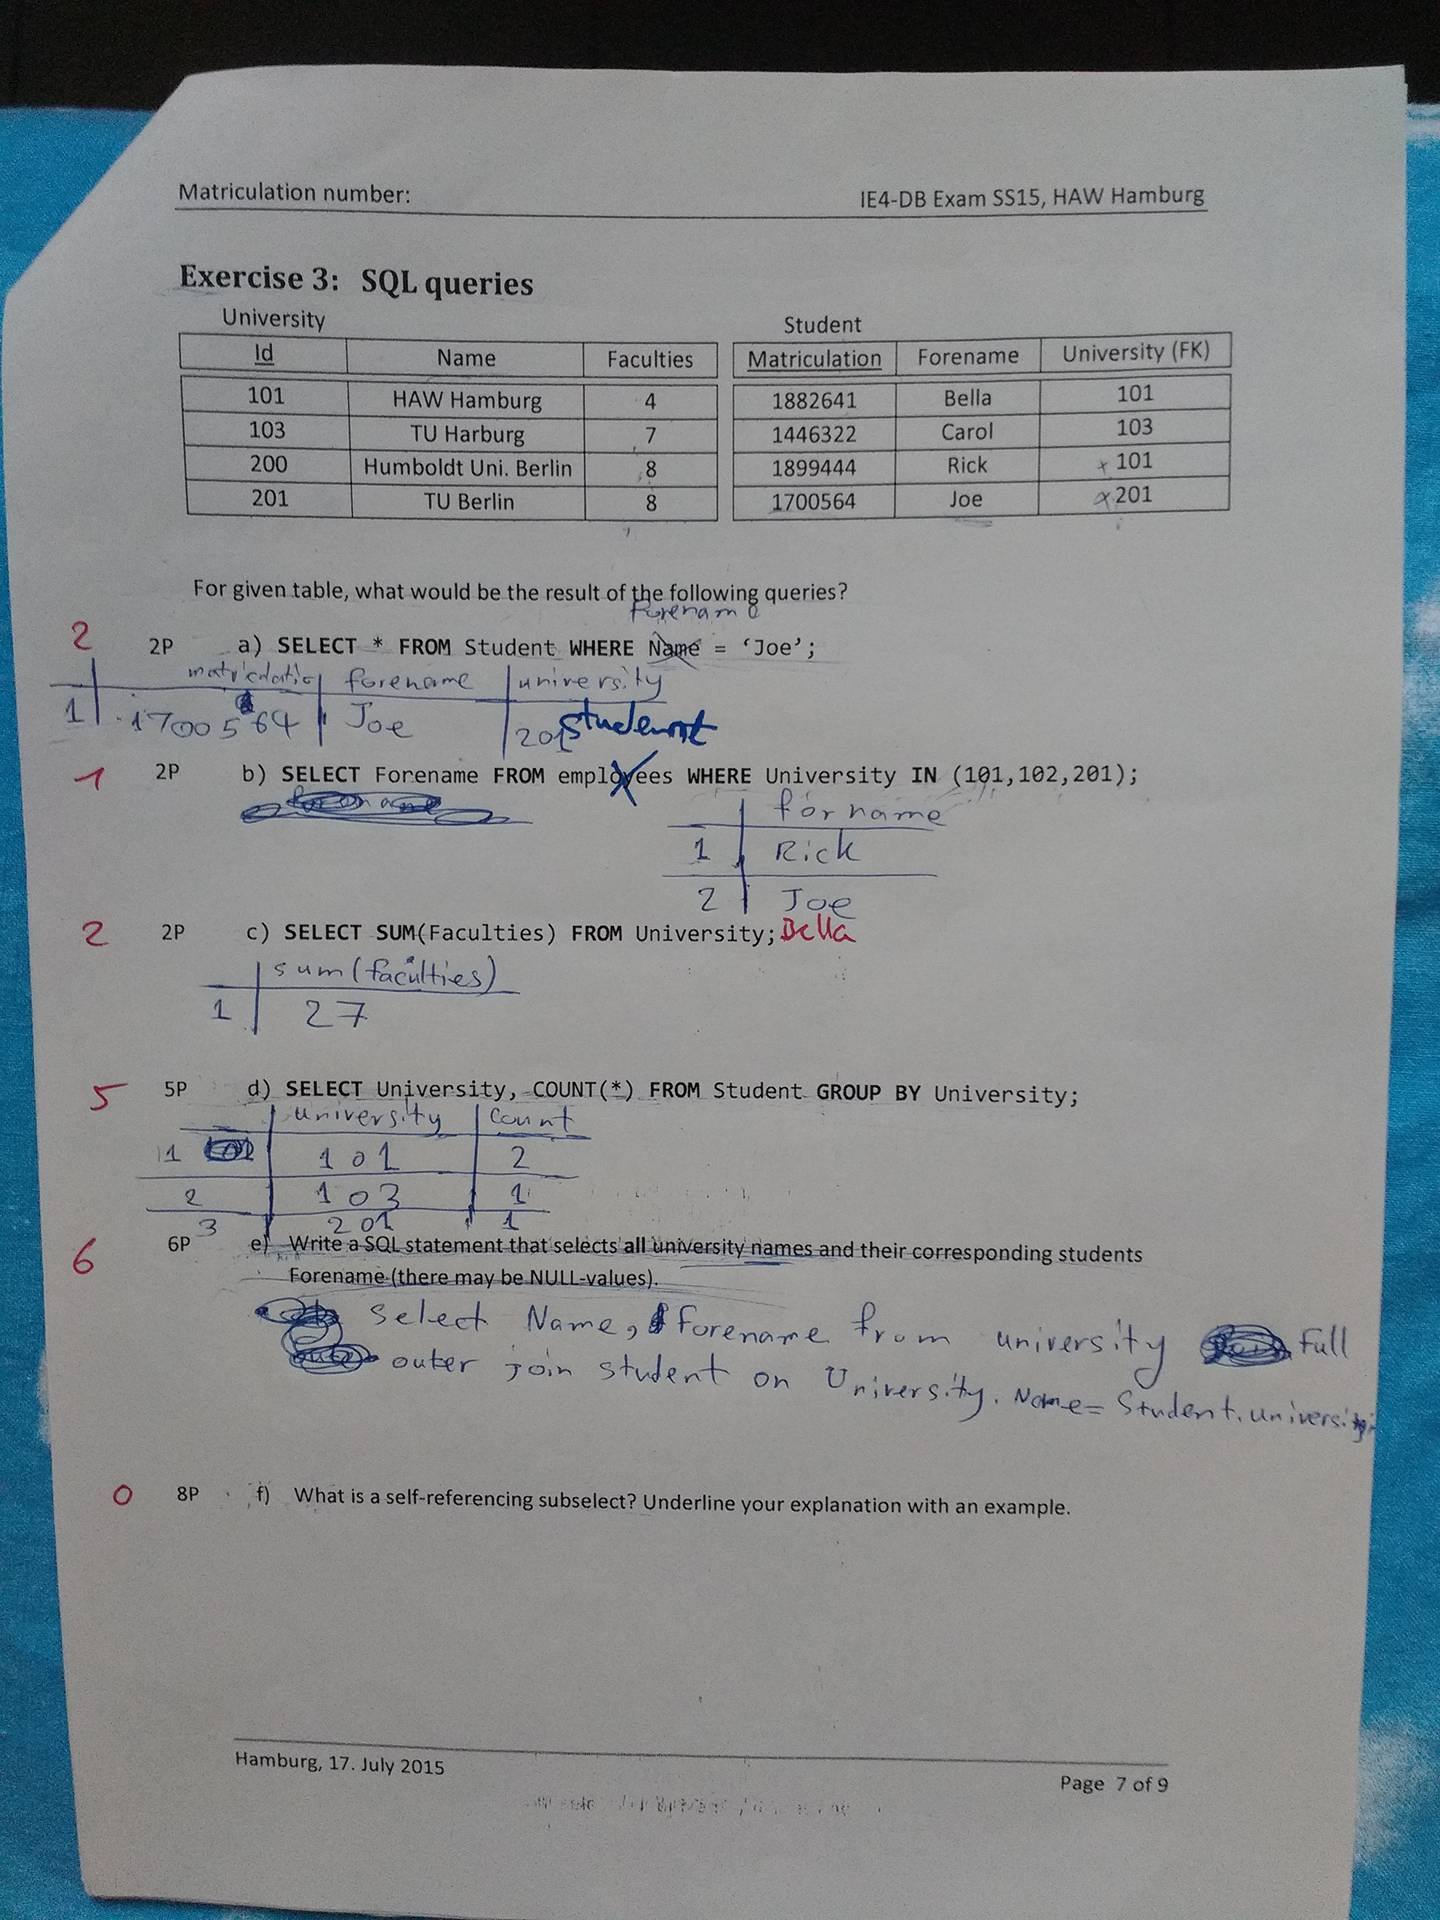 Matriculation number: IE4-DB Exam SS15, HAW Hamburg
Exercise 3: SQL queries
University
Id Name Faculties
101 HAW Hamburg 4
103 TU Harburg 7
200 Humboldt Uni. Berlin 8
201 TU Berlin 8
Student
Matriculation Forename University (FK)
1882641 Bella 101
1446322 Carol 103
1899444 Rick x 101
1700564 Joe x 201
For given table, what would be the result of the following queries?
Forename
2 2P a) SELECT * FROM Student WHERE Name = ‘Joe’;
forename university
1 1700564 Joe 201
student
1 2P b) SELECT Forename FROM employees WHERE University IN (101,102,201);
forname
1 Rick
2 Joe
Bella
2 2P c) SELECT SUM(Faculties) FROM University;
sum(faculties)
1 27
5 5P d) SELECT University, COUNT(*) FROM Student GROUP BY University;
university count
1 101 2
2 103 1
3 201 1
6 6P e) Write a SQL statement that selects all university names and their corresponding students
Forename (there may be NULL-values).
Select Name, forename from university Full
outer join student on University. Name= Student.universi
0 8P f) What is a self-referencing subselect? Underline your explanation with an example.
Hamburg, 17. July 2015
Page 7 of 9